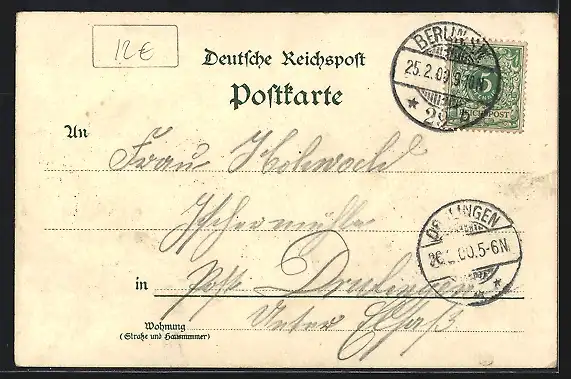 12 €
Deutsche Reichspost
Postkarte
BERLIN
25.2.00.9-10N
* 29
5
REICHSPOST
An
Frau
DRULINGEN
26.2.00.5-6N
* *
in Post Drulingen
Unter Elsaß
Wohnung
(Straße und Hausnummer)